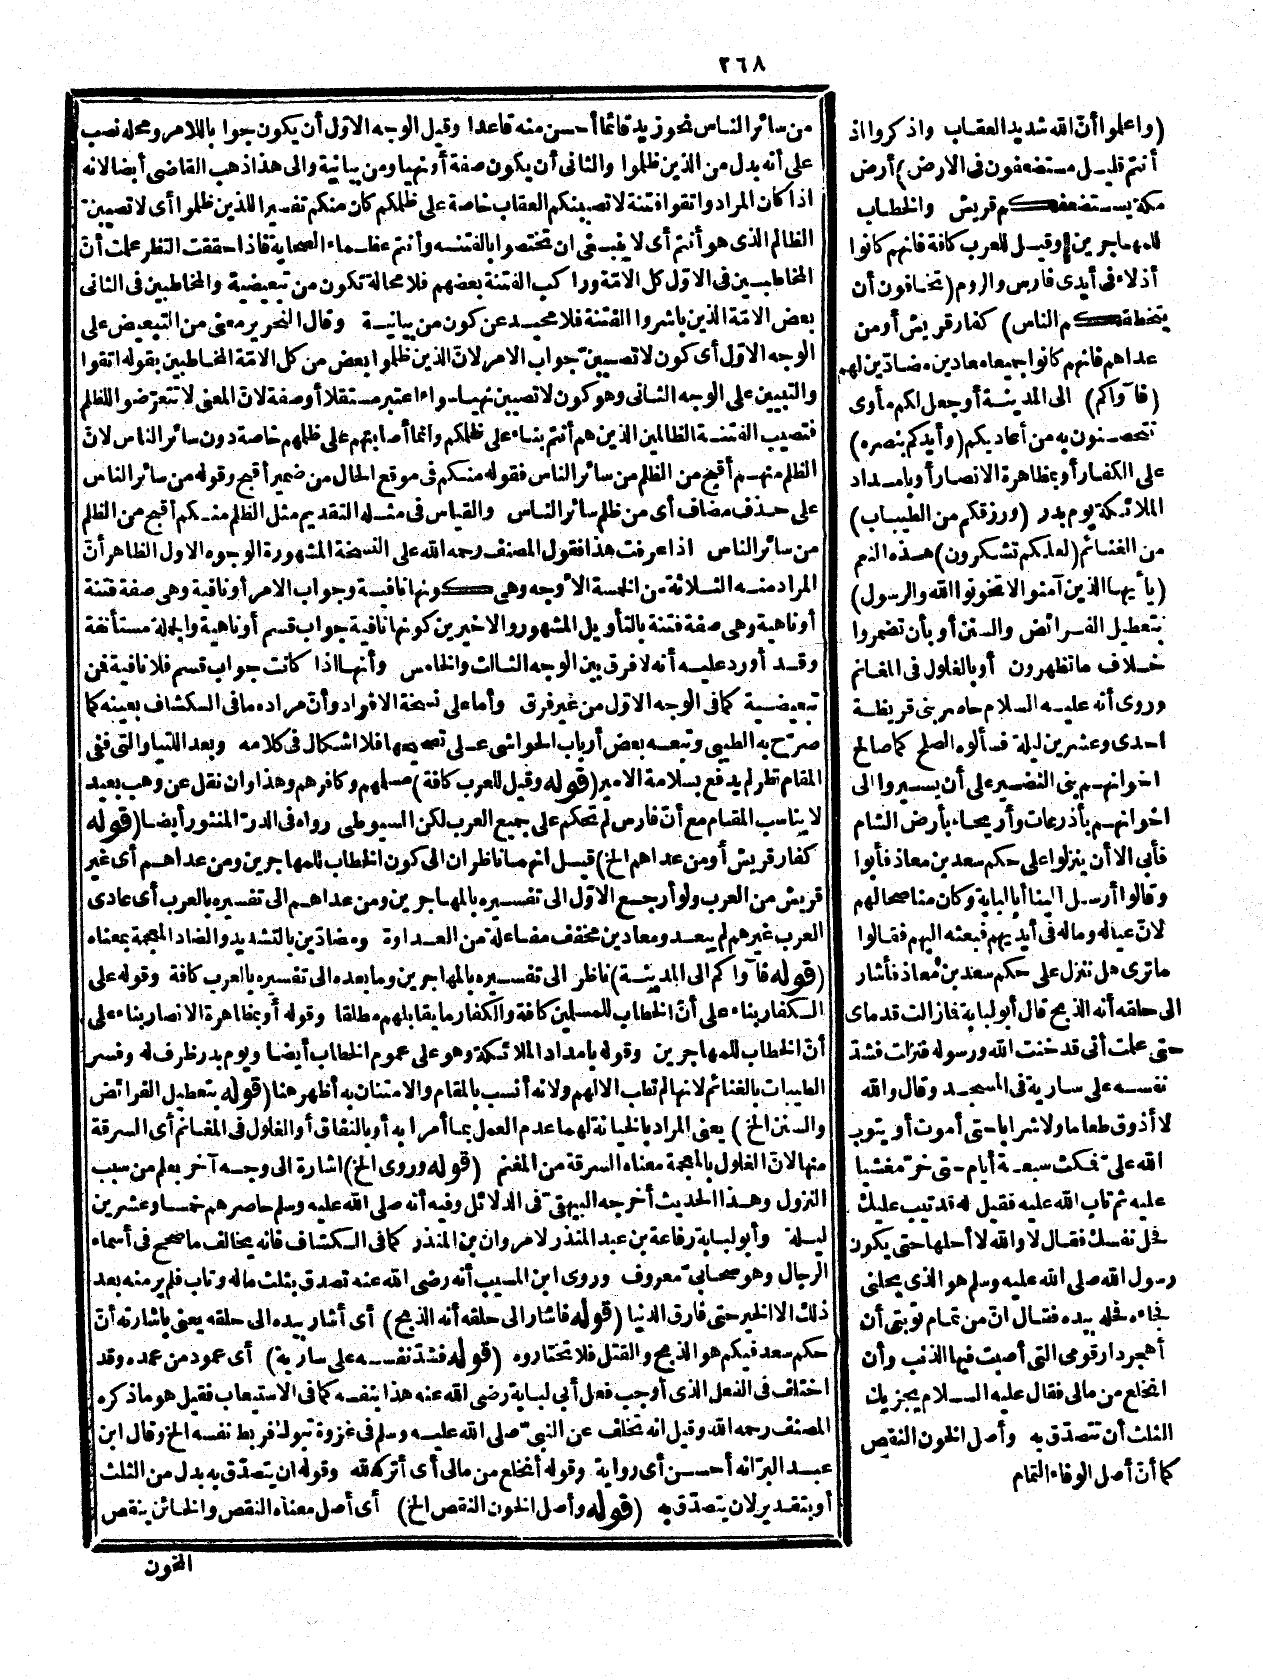 ٢٦٨
(واعلموا أن الله شديد العقاب واذكروا اذ
أنتم قليل مستضعفون فى الارض) أرض
مكة يستضعفكم قريش والخطاب
للمهاجرين وقيل للعرب كافة فانهم كانوا
أذلاء فى أيدى فارس والروم (تخافون أن
يتخطفكم الناس) كفار قريش أو من
عداهم فانهم كانوا جميعا معادين مضادّين لهم
(فآواكم) الى المدينة أو جعل لكم مأوى
تتحصنون به من أعاديكم (وأيدكم بنصره)
على الكفار أو بمظاهرة الانصار أو بامداد
الملائكة يوم بدر (ورزقكم من الطيبات)
من الغنائم (لعلكم تشكرون) هذه النعم
(يا أيها الذين آمنوا لا تخونوا الله والرسول)
بتعطيل الفرائض والسنن أو بأن تضمروا
خلاف ما تظهرون أو بالغلول فى المغانم
وروى أنه عليه السلام حاصر بنى قريظة
احدى وعشرين ليلة فسألوه الصلح كما صالح
اخوانهم بنى النضير على أن يسيروا الى
اخوانهم بأذرعات وأريحاء بأرض الشام
فأبى الا أن ينزلوا على حكم سعد بن معاذ فأبوا
وقالوا أرسل الينا أبا لبابة وكان مناصحا لهم
لانّ عياله وماله فى أيديهم فبعثه اليهم فقالوا
ما ترى هل ننزل على حكم سعد بن معاذ فأشار
الى حلقه أنه الذبح قال أبو لبابة فما زالت قدماى
حتى علمت أنى قد خنت الله ورسوله فنزلت فشدّ
نفسه على سارية فى المسجد وقال والله
لا أذوق طعاما ولا شرابا حتى أموت أو يتوب
الله علىّ فمكث سبعة أيام حتى خرّ مغشيا
عليه ثم تاب الله عليه فقيل له قد تيب عليك
فحل نفسك فقال لا والله لا أحلها حتى يكون
رسول الله صلى الله عليه وسلم هو الذى يحلنى
فجاءه فحله بيده فقال انّ من تمام توبتى أن
أهجر دار قومى التى أصبت فيها الذنب وأن
انخلع من مالى فقال عليه السلام يجزيك
الثلث أن تتصدّق به وأصل الخون النقص
كما أن أصل الوفاء التمام
من سائر الناس نحو زيد قائما أحسن منه قاعدا وقيل الوجه الاوّل أن يكون جوابا للامر ومحله نصب
على أنه بدل من الذين ظلموا والثانى أن يكون صفة أو نهيا ومن بيانية والى هذا ذهب القاضى أيضا لانه
اذا كان المراد واتقوا فتنة لا تصيبنكم العقاب خاصة على ظلمكم كان منكم تفسيرا للذين ظلموا أى لا تصيبنّ
الظالم الذى هو أنتم أى لا ينبغى ان تختصوا بالفتنة وأنتم عظماء الصحابة فاذا حققت النظر علمت أنّ
المخاطبين فى الاوّل كل الامّة وراكب الفتنة بعضهم فلا محالة تكون من تبعيضية والمخاطبين فى الثانى
بعض الامّة الذين باشروا الفتنة فلا محيد عن كون من بيانية وقال النحرير معنى من التبعيض على
الوجه الاوّل أى كون لا تصيبنّ جواب الامر لانّ الذين ظلموا بعض من كل الامّة المخاطبين بقوله اتقوا
والتبيين على الوجه الثانى وهو كون لا تصيبن نهيا سواء اعتبر مستقلا أو صفة لانّ المعنى لا تتعرّضوا للظلم
فتصيب الفتنة الظالمين الذين هم أنتم بناء على ظلمكم وانما أصابتهم على ظلمهم خاصة دون سائر الناس لانّ
الظلم منهم أقبح من الظلم من سائر الناس فقوله منكم فى موقع الحال من ضمير أقبح وقوله من سائر الناس
على حذف مضاف أى من ظلم سائر الناس والقياس فى مثله التقديم مثل الظلم منكم أقبح من الظلم
من سائر الناس اذا عرفت هذا فقول المصنف رحمه الله على النسخة المشهورة الوجوه الاول الظاهر أنّ
المراد منه الثلاثة من الخمسة الاوجه وهى كونها نافية وجواب الامر أو نافية وهى صفة فتنة
أو ناهية وهى صفة فتنة بالتأويل المشهور والاخيرين كونها نافية جواب قسم أو ناهية والجملة مستأنفة
وقد أورد عليه أنه لا فرق بين الوجه الثالث والخامس وأنها اذا كانت جواب قسم فلا نافية فمن
تبعيضية كما فى الوجه الاوّل من غير فرق وأما على نسخة الافراد وأنّ مراده ما فى الكشاف بعينه كما
صرّح به الطيبى وتبعه بعض أرباب الحواشى على تصحيحها فلا اشكال فى كلامه وبعد اللتيا والتى ففى
المقام نظر لم يدفع بسلامة الامير (قوله وقيل للعرب كافة) مسلمهم وكافرهم وهذا وان نقل عن وهب بعيد
لا يناسب المقام مع أنّ فارس لم تحكم على جميع العرب لكن السيوطى رواه فى الدرّ المنثور أيضا (قوله
كفار قريش أو من عداهم الخ) قيل انهما ناظران الى كون الخطاب للمهاجرين ومن عداهم أى غير
قريش من العرب ولو أرجع الاوّل الى تفسيره بالمهاجرين ومن عداهم الى تفسيره بالعرب أى عادى
العرب غيرهم لم يبعد ومعادين مخفف مفاعلة من العداوة ومضادّين بالتشديد والضاد المعجمة بمعناه
(قوله فآواكم الى المدينة) ناظر الى تفسيره بالمهاجرين وما بعده الى تفسيره بالعرب كافة وقوله على
الكفار بناء على أنّ الخطاب للمسلمين كافة والكفار ما يقابلهم مطلقا وقوله أو بمظاهرة الانصار بناء على
أنّ الخطاب للمهاجرين وقوله بامداد الملائكة وهو على عموم الخطاب أيضا ويوم بدر ظرف له وفسر
الطيبات بالغنائم لانها لم تطب الا لهم ولانه أنسب بالمقام والامتنان به أظهر هنا (قوله بتعطيل الفرائض
والسنن الخ) يعنى المراد بالخيانة لهما عدم العمل بما أمرا به أو بالنفاق أو الغلول فى المغانم أى السرقة
منها لانّ الغلول بالمعجمة معناه السرقة من المغنم (قوله وروى الخ) اشارة الى وجه آخر يعلم من سبب
النزول وهذا الحديث أخرجه البيهقىّ فى الدلائل وفيه أنه صلى الله عليه وسلم حاصرهم خمسا وعشرين
ليلة وأبو لبابة رفاعة بن عبد المنذر لا مروان بن المنذر كما فى الكشاف فانه يخالف ما صحح فى أسماء
الرجال وهو صحابىّ معروف وروى ابن المسيب أنه رضى الله عنه تصدق بثلث ماله وتاب فلم ير منه بعد
ذلك الا الخير حتى فارق الدنيا (قوله فاشار الى حلقه أنه الذبح) أى أشار بيده الى حلقه يعنى باشارته أنّ
حكم سعد فيكم هو الذبح والقتل فلا تختاروه (قوله فشدّ نفسه على سارية) أى عمود من عمده وقد
اختلف فى الفعل الذى أوجب فعل أبى لبابة رضى الله عنه هذا بنفسه كما فى الاستيعاب فقيل هو ما ذكره
المصنف رحمه الله وقيل انه تخلف عن النبىّ صلى الله عليه وسلم فى غزوة تبوك فربط نفسه الخ وقال ابن
عبد البرّ انه أحسن أى رواية وقوله أنخلع من مالى أى أتركه لله وقوله ان يتصدّق به بدل من الثلث
أو بتقدير لان يتصدّق به (قوله وأصل الخون النقص الخ) أى أصل معناه النقص والخائن ينقص
المخون